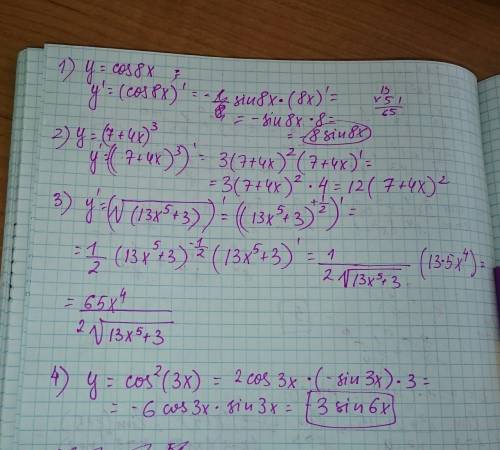 1) y = cos8x ;
y' = (cos8x)' = - sin8x · (8x)' =
= - sin8x · 8 =
= - 8 sin8x
13
x 5
65
2) y = (7+4x)³
y' = ((7+4x)³)' = 3(7+4x)² (7+4x)' =
= 3(7+4x)² · 4 = 12(7+4x)²
3) y' = (√(13x⁵+3))' = ((13x⁵+3)^{+1/2})' =
= 1/2 (13x⁵+3)^{-1/2} (13x⁵+3)' = 1/(2√(13x⁵+3)) (13·5x⁴) =
= 65x⁴/(2√(13x⁵+3))
4) y = cos²(3x) = 2cos3x · (-sin3x) · 3 =
= -6 cos3x · sin3x = -3 sin6x